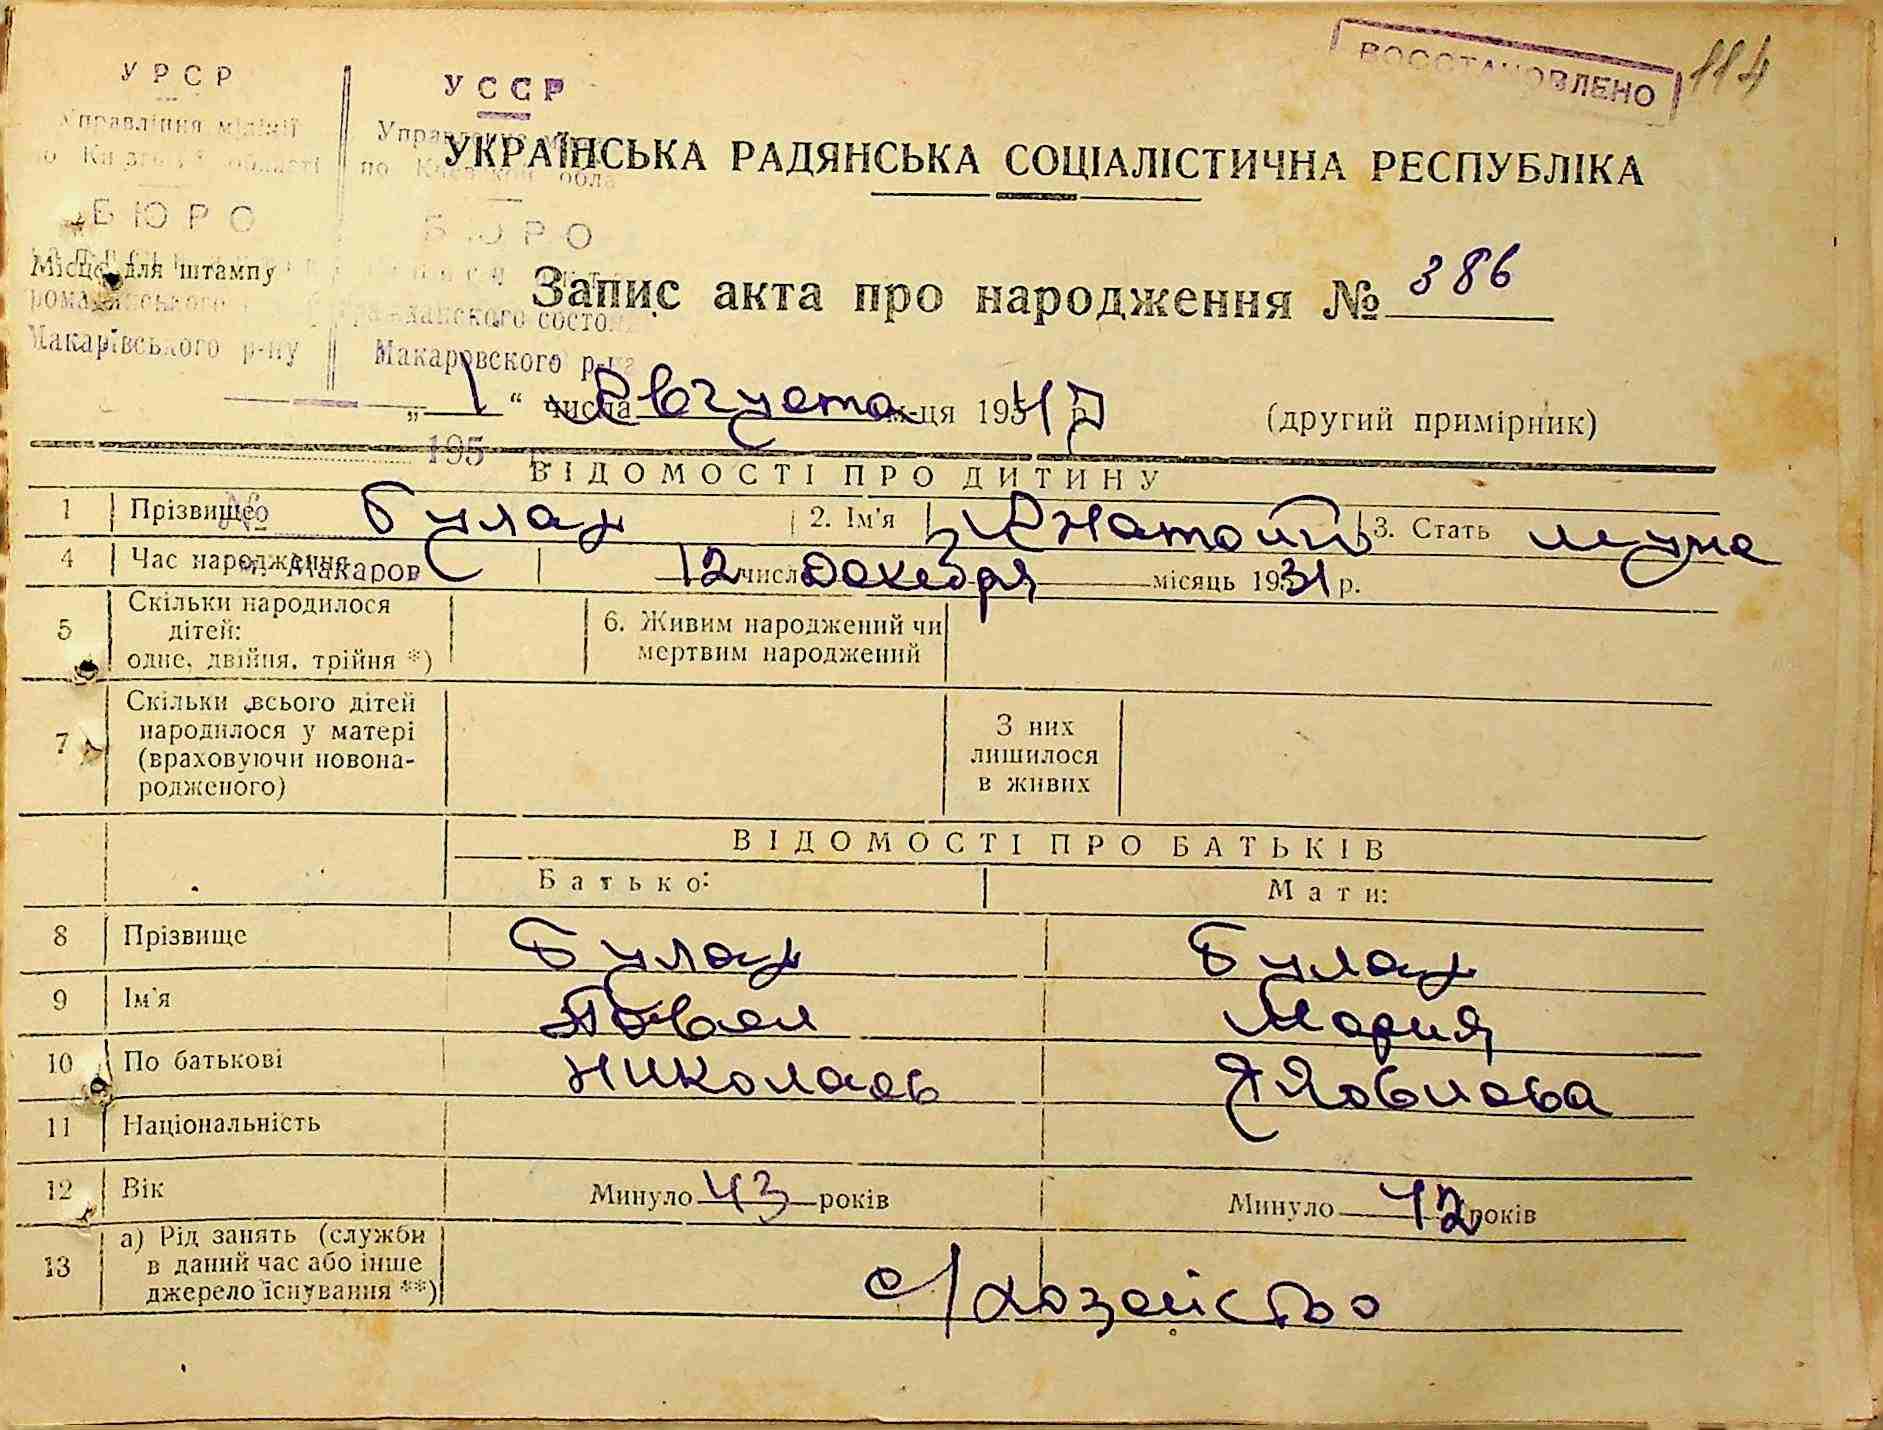 ВОССТАНОВЛЕНО
114
УРСР
Управління міліції
по Київській області
БЮРО
громадянського
Макарівського р-ну
УССР
по Киевской обла
БЮРО
гражданского состоя
Макаровского р-на
195
№
м. Макаров
УКРАЇНСЬКА РАДЯНСЬКА СОЦІАЛІСТИЧНА РЕСПУБЛІКА
Місце для штампу
Запис акта про народження № 386
„ 1 “ числа Августа м-ця 195 47 р. (другий примірник)
ВІДОМОСТІ ПРО ДИТИНУ
1 Прізвище Булах 2. Ім'я Анатолий 3. Стать мужс
4 Час народження 12 числ Декабря місяць 1931 р.
5 Скільки народилося дітей: одне, двійня, трійня *) 6. Живим народжений чи мертвим народжений
7 Скільки всього дітей народилося у матері (враховуючи новонародженого) З них лишилося в живих
ВІДОМОСТІ ПРО БАТЬКІВ
Батько: Мати:
8 Прізвище Булах Булах
9 Ім'я Павел Мария
10 По батькові Николаев
11 Національність
12 Вік Минуло 43 років Минуло 42 років
13 а) Рід занять (служби в даний час або інше джерело існування **) с/хозейство